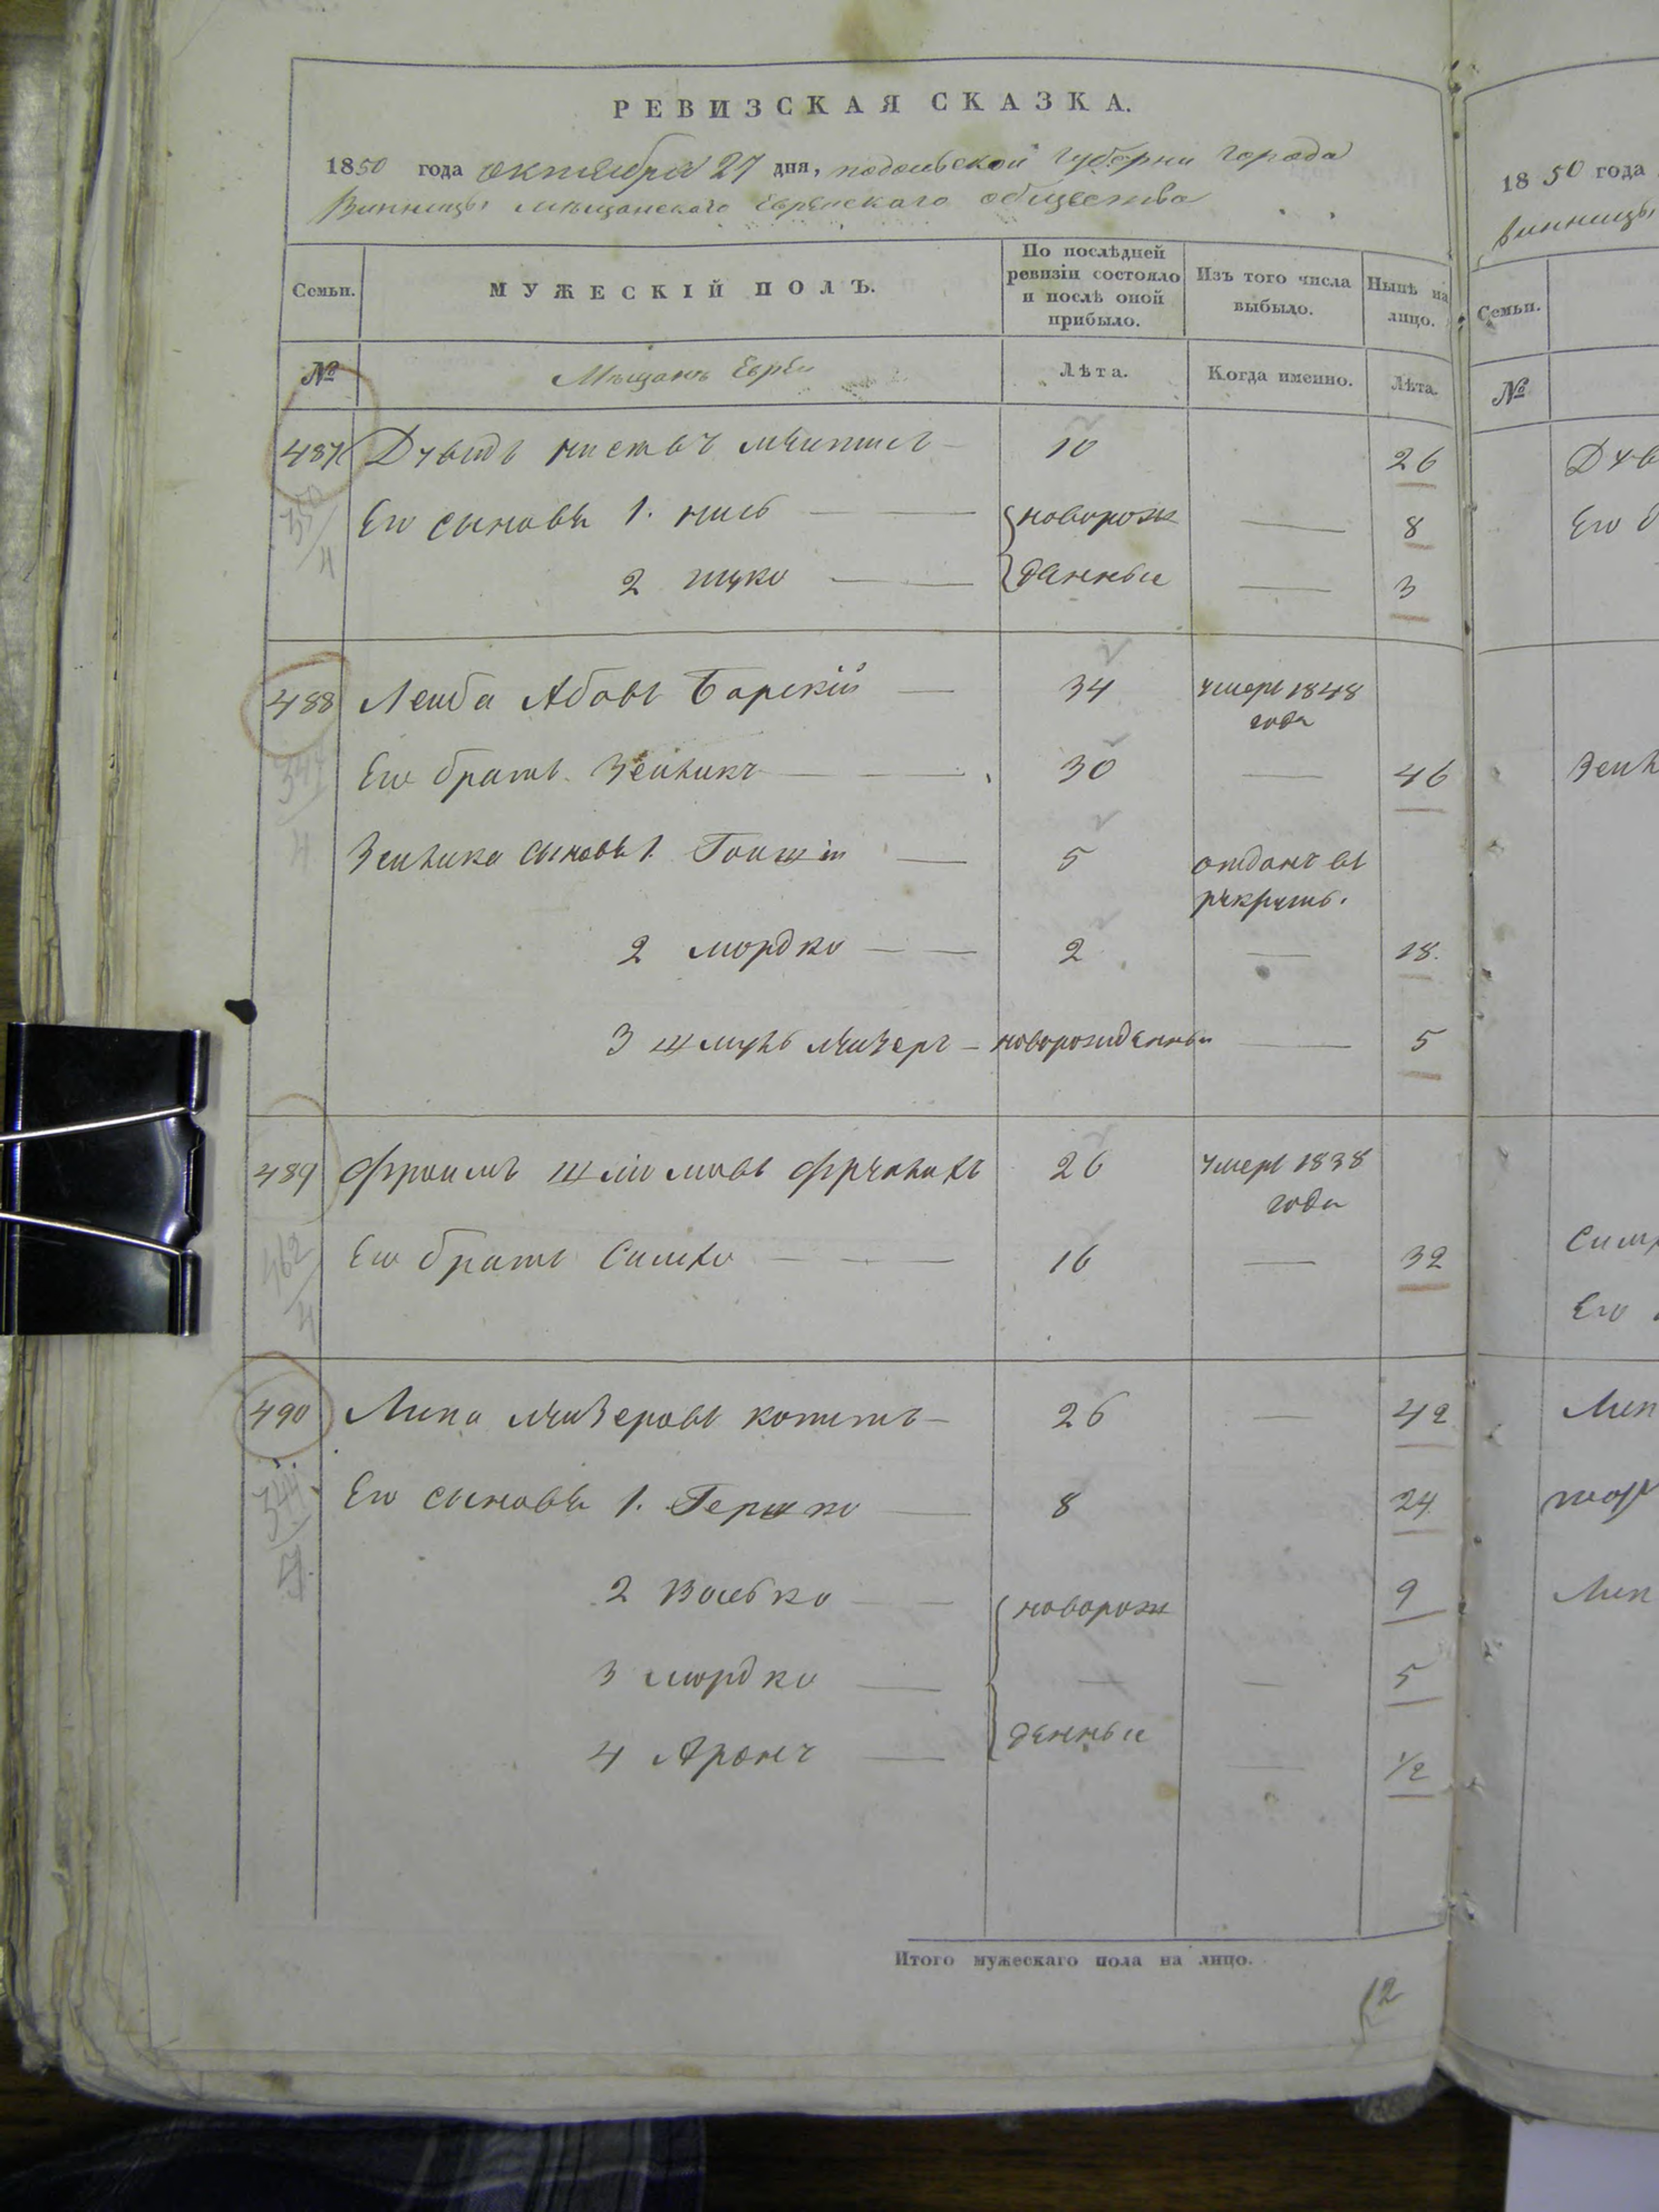 РЕВИЗСКАЯ СКАЗКА.
1850 года октября 27 дня, подольской губерни города
Винницы мѣщанскаго еврейскаго общества
Семьи.
МУЖЕСКІЙ ПОЛЪ.
По послѣдней ревизіи состояло и послѣ оной прибыло.
Изъ того числа выбыло.
Нынѣ на лицо.
№
Мѣщанъ Евреи
Лѣта.
Когда именно.
Лѣта.
487 Дувидъ 10 26
Его сыновья 1. новорож 8
2 ицко данные 3
488 Лейба Абовъ Барскій 34 умеръ 1848 года
Его братъ Зейликъ 30 46
Зейлика сыновья 1. 5 отданъ въ рекруты.
2 мордко 2 18.
3 шмуль новорожденны 5
489 Фроимъ 26 умеръ 1838 года
Его братъ Симха 16 32
490 Липа 26 42
Его сыновья 1. Гершко 8 24
2 Волько новорож 9
3 мордко 5
4 Аронъ денные 1/2
Итого мужескаго пола на лицо.
12
1850 года
Винницы
Семьи.
№
Дув
Его
Зейл
Симх
Его
Лип
Лип